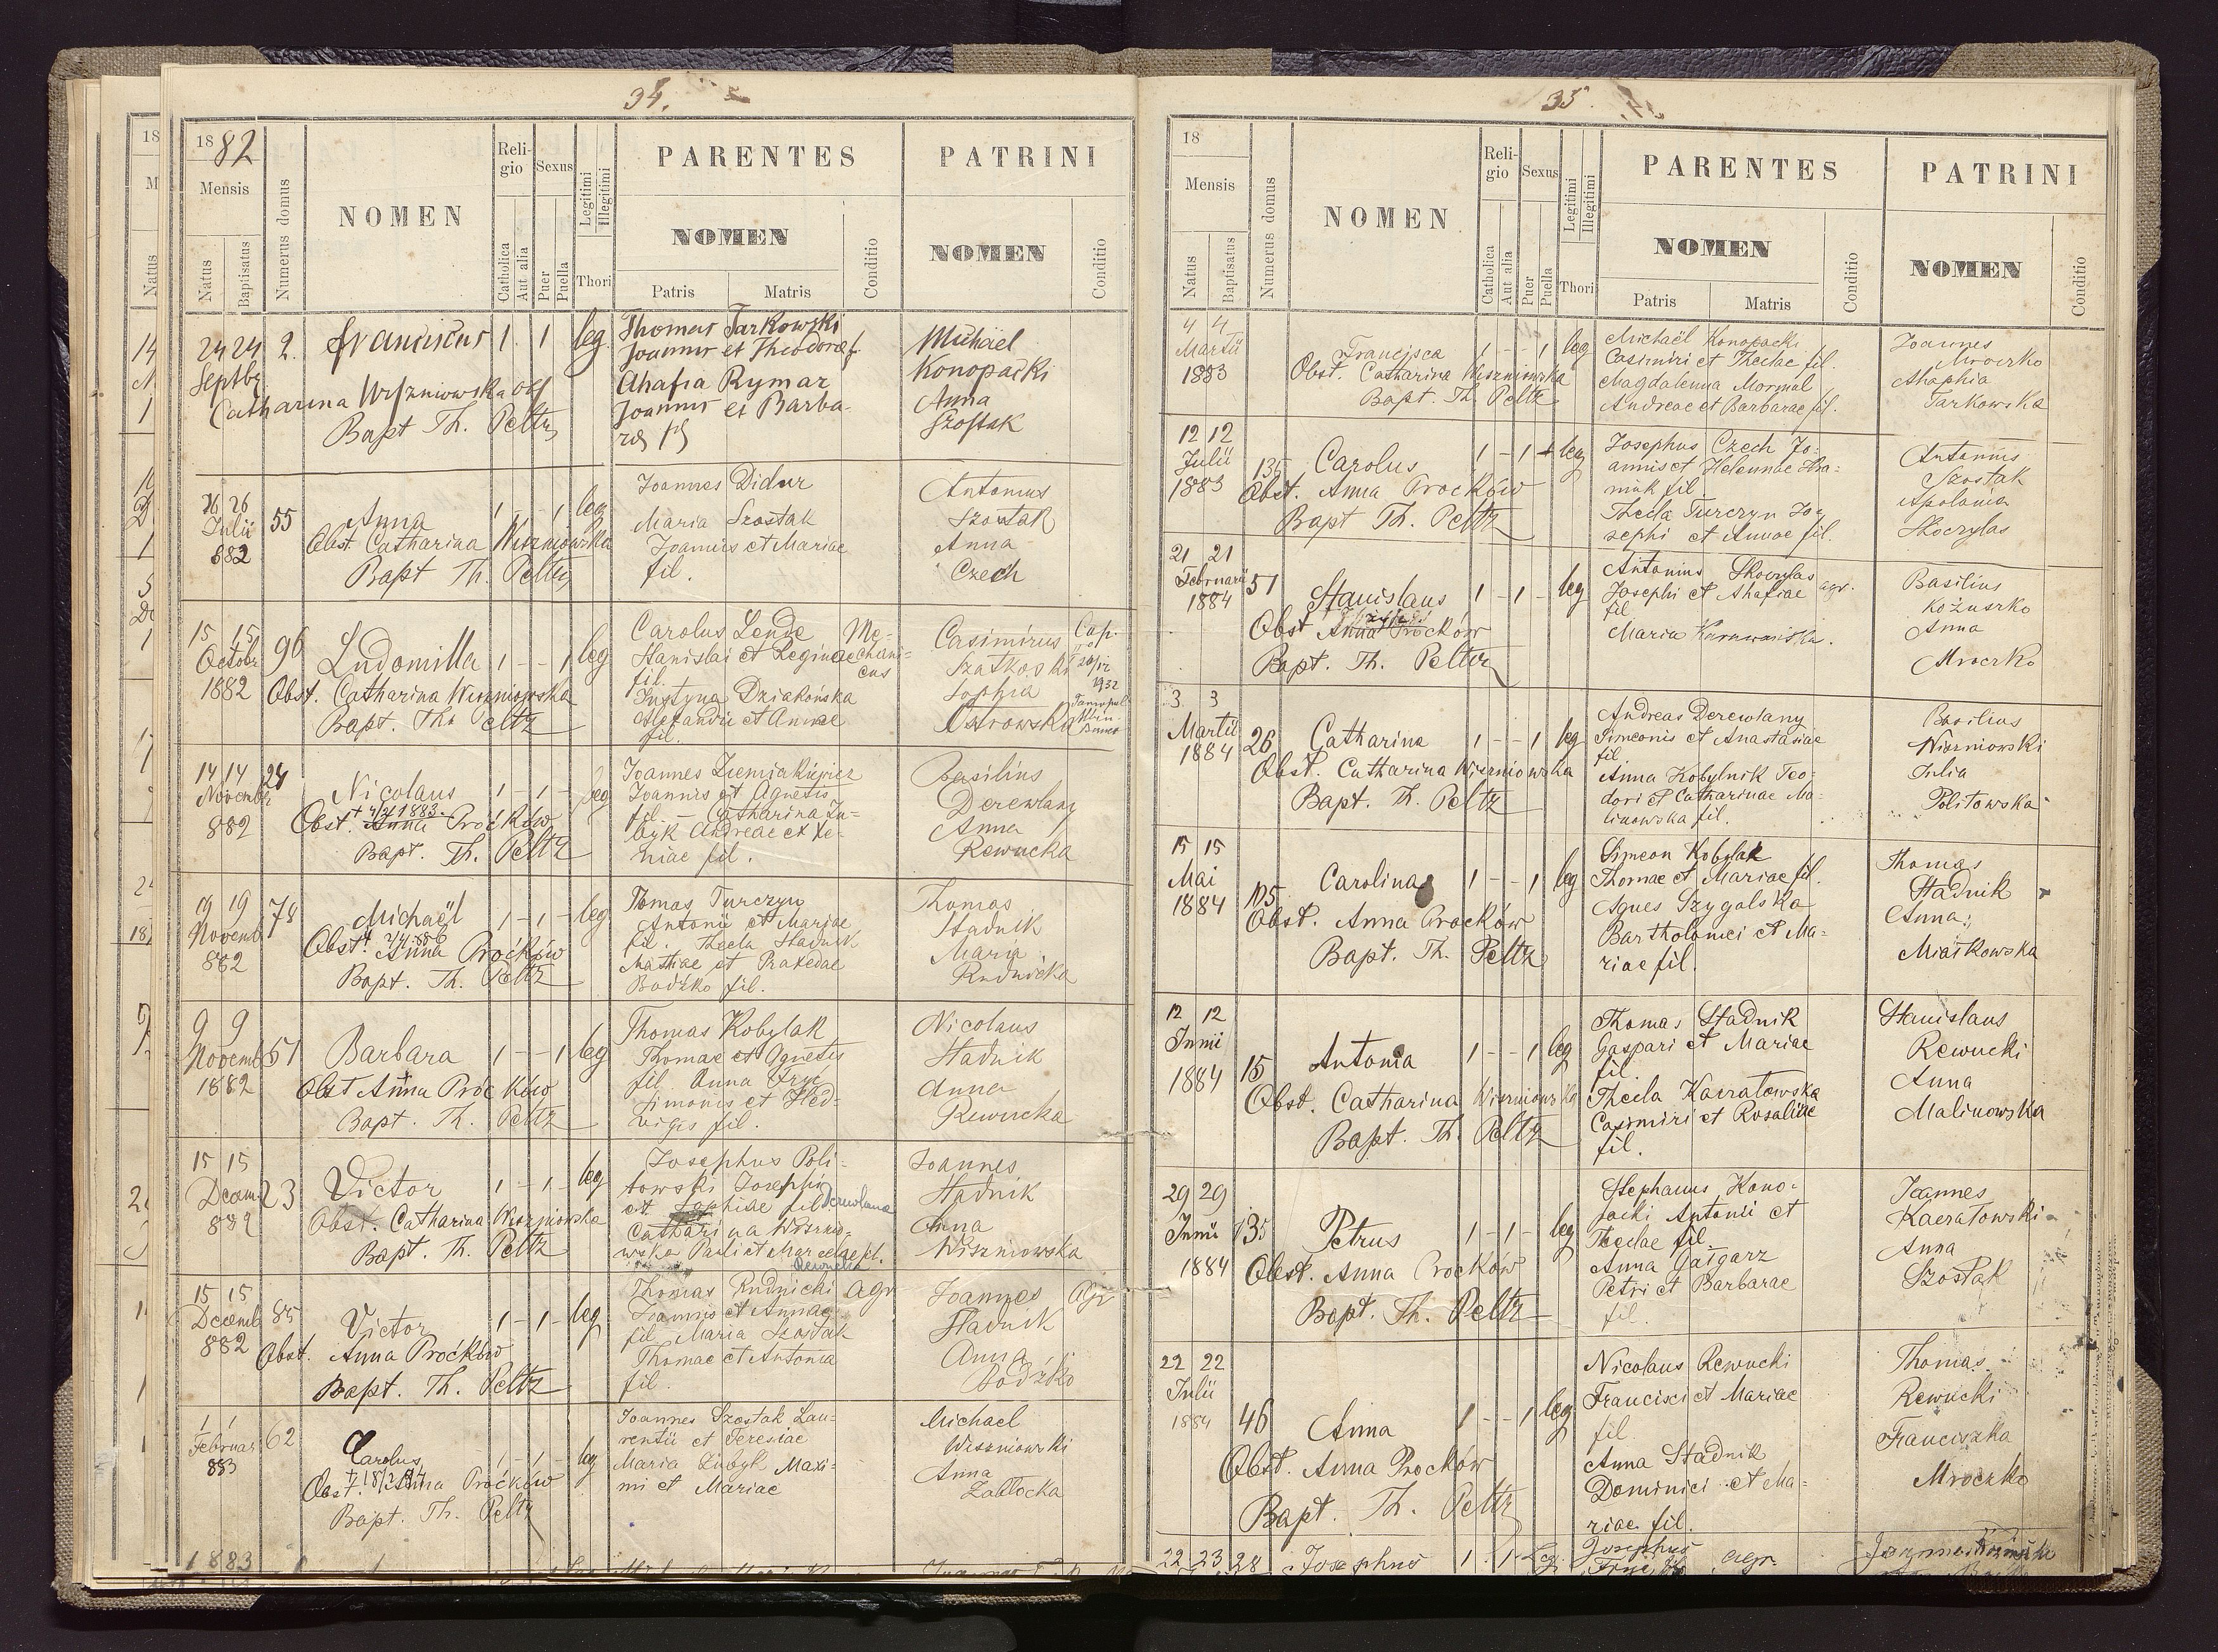 34.
1882
Mensis
Natus
Baptisatus
Numerus domus
NOMEN
Religio
Catholica
Aut alia
Sexus
Puer
Puella
Legitimi
Illegitimi
Thori
PARENTES
NOMEN
Patris
Matris
Conditio
PATRINI
NOMEN
Conditio
24 24 2. Franciscus 1 . 1 leg. Thomas Tarkowski Michael
Septbr Joannis et Theodorae f. Konopacki
Catharina Wiszniowska obs Ahafia Rymar Anna
Bapt Th. Peltz Joannis et Barba- Szostak
rae fil
26 26 55 Anna 1 - - 1 leg Joannes Didur Antonius
Julii Maria Szostak Szostak
882 Obst. Catharina Wiszniowska Joannis et Mariae Anna
Bapt Th. Peltz fil. Czech
15 15 96 Ludomilla 1 - - 1 leg Carolus Lende Me- Casimirus Cop.
Octobr Stanislai et Reginae chani- Szatkoski
1882 Obst. Catharina Wiszniowska fil. cus Sophia 1932
Bapt. Th. Peltz Justyna Dziakońska Ostrowska
Alexandri et Annae
fil.
14 14 24 Nicolaus 1 - 1 - leg Joannes Ziemiakiewicz Basilius
Novembr Joannis et Agnetis Derewlany
882 Obst. Anna Proćków fil. - Catharina Anna
Bapt. Th. Peltz Andreae et Xe- Rewucka
niae fil.
19 19 78 Michaël 1 - 1 - leg. Tomas Turczyn Thomas
Novemb Antonii et Mariae Stadnik
882 Obst. Anna Proćków fil. Thecla Stadnik Maria
Bapt. Th. Peltz Mathiae et Praxedae Rudnicka
Bodźko fil.
9 9 51 Barbara 1 - - 1 leg Thomas Kobylak Nicolaus
Novemb Thomae et Agnetis Stadnik
1882 Obst Anna Proćków fil. Anna Fryc Anna
Bapt. Th. Peltz Simonis et Hed- Rewucka
vigis fil.
15 15 23 Victor 1 - 1 - leg Josephus Poli- Joannes
Decem. towski Josephi Stadnik
882 Obst. Catharina Wiszniowska et Sophiae fil Derewlana Anna
Bapt. Th. Peltz Catharina Wiszno- Wiszniowska
wska Pauli et Marcelae fil.
Rewucka
15 15 85 Victor 1 - 1 - leg. Thomas Rudnicki Agr Joannes Agr
Decemb Joannis et Annae Stadnik
882 Obst. Anna Proćków fil. Maria Szostak Anna
Bapt. Th. Peltz Thomae et Antonia Bodźko
fil.
1 1 62 Carolus 1 - 1 - leg Joannes Szostak Lau- Michael
Februar rentii et Teresiae Wiszniowski
883 Obst. Anna Proćków Maria Maxi- Anna
Bapt. Th. Peltz mi et Mariae Zabłocka
1883
35.
18
Mensis
Natus
Baptisatus
Numerus domus
NOMEN
Religio
Catholica
Aut alia
Sexus
Puer
Puella
Legitimi
Illegitimi
Thori
PARENTES
NOMEN
Patris
Matris
Conditio
PATRINI
NOMEN
Conditio
4 4 Francisca 1 - - 1 leg Michaël Konopacki Joannes
Martii Casimiri et Theclae fil. Mroczko
1883 Obst. Catharina Wiszniowska Magdalenna Mormal Ahaphia
Bapt. Th. Peltz Andreae et Barbarae fil. Tarkowska
12 12 135 Carolus 1 - 1 leg Josephus Czech Jo- Antonius
Julii annis et Helennae Szostak
1883 Obst. Anna Proćków fil Apolonia
Bapt Th. Peltz Thecla Turczyn Jo- Skoczylas
sephi et Annae fil.
21 21 51 Stanislaus 1 - 1 - leg Antonius Skoczylas agr. Basilius
Februarii Josephi et Ahafiae Kożuszko
1884 Obst Anna Proćków fil Anna
Bapt. Th. Peltz Maria Mroczko
3 3 26 Catharina 1 - - 1 leg Andreas Derewlany Basilius
Martii Simeonis et Anastasiae Wiszniowski
1884 Obst. Catharina Wiszniowska fil Julia
Bapt. Th. Peltz Anna Kobylnik Teo- Politowska
dori et Catharinae Ma-
linowska fil.
15 15 105 Carolina 1 - - 1 leg Simeon Kobylak Thomas
Mai Thomae et Mariae fil. Stadnik
1884 Obst. Anna Proćków Agnes Szygalska Anna
Bapt. Th. Peltz Bartholomei et Ma- Miatkowska
riae fil.
12 12 15 Antonia 1 - - 1 leg Thomas Stadnik Stanislaus
Junii Gaspari et Mariae Rewucki
1884 Obst. Catharina Wiszniowska fil Anna
Bapt. Th. Peltz Thecla Kaeratowska Malinowska
Casimiri et Rosaliae
fil.
29 29 135 Petrus 1 - 1 - leg Stephanus Kono- Joannes
Junii packi Antonii et Kaeratowski
1884 Obst. Anna Proćków Theclae fil. Anna
Bapt. Th. Peltz Anna Gargarz Szostak
Petri et Barbarae
fil.
22 22 46 Anna 1 - - 1 leg Nicolaus Rewucki Thomas
Julii Francisci et Mariae Rewucki
1884 Obst. Anna Proćków fil. Franciszka
Bapt. Th. Peltz Anna Stadnik Mroczko
Dominici et Ma-
riae fil.
22 23 28 Josephus 1 . 1 - Leg. Josephus agr.